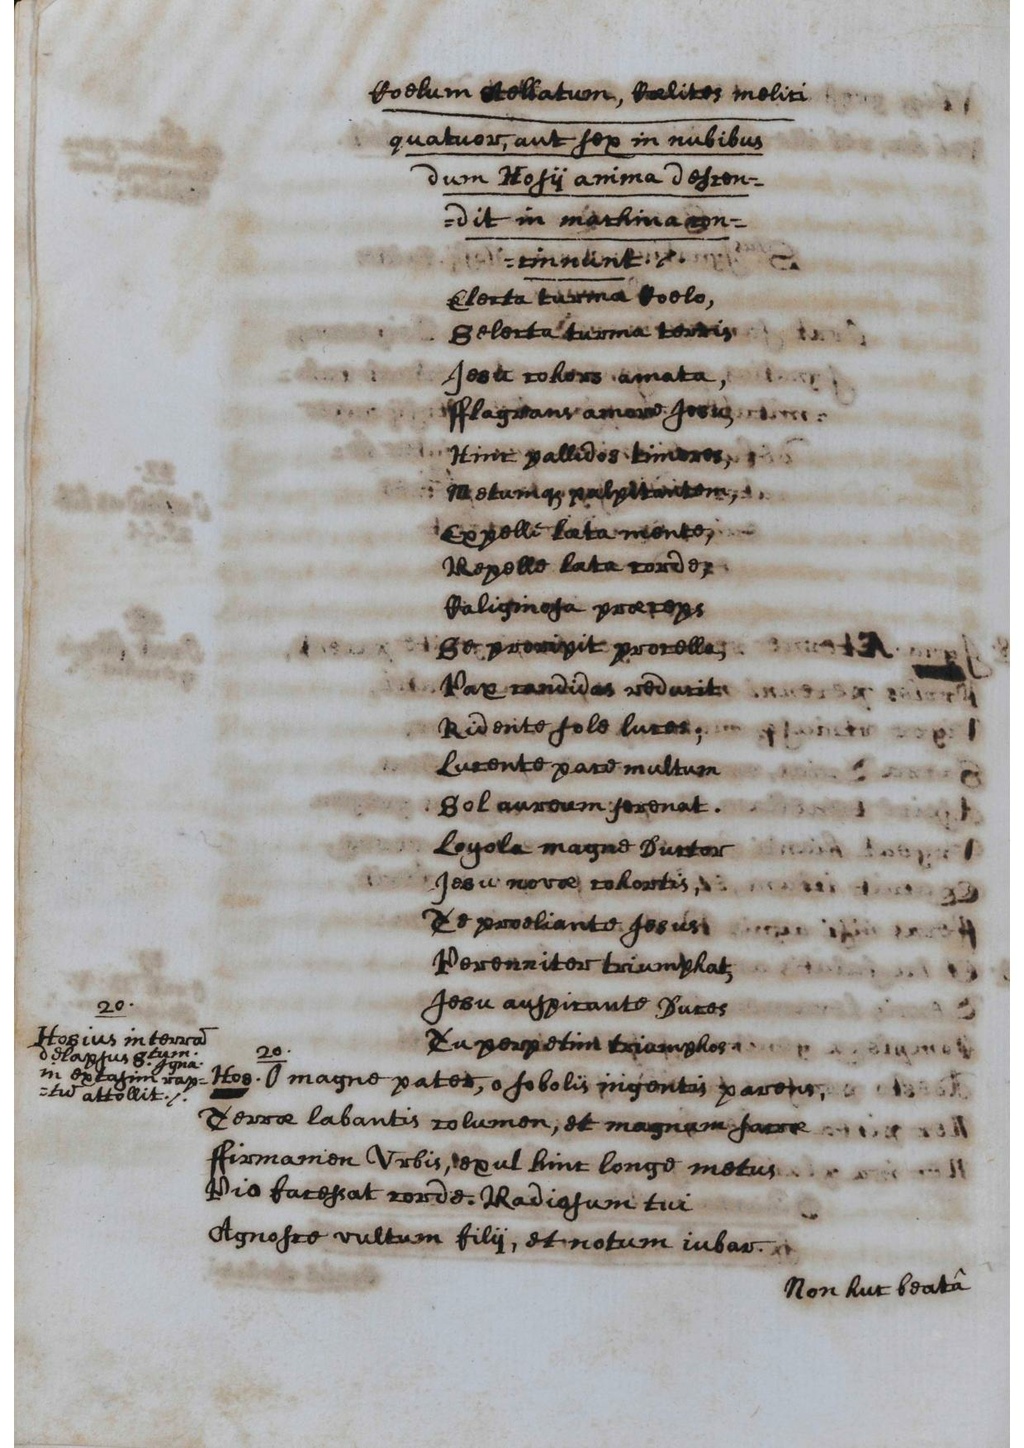 Coelum stellatum, Cælites meliti
quatuor, aut sex in nubibus
dum Hosij anima descen=
=dit in machina con=
=cinnunt ./.
Electa turma Coelo,
Selecta turma terris
Jesu cohors amata,
fflagrans amore Jesu,
Hinc pallidos timores,
Metumq; palpitantem,
Expelle læta mente,
Repelle læta corde;
Caliginosa præceps
Se proripit procella;
Pax candidas reducit
Ridente sole luces;
Lucente pace multum
Sol aureum serenat.
Loyola magne Ductor
Jesu novæ cohortis,
Te proeliante Jesus
Perenniter triumphat;
Jesu auspicante Duces
Tu perpetim triumphos
20.
Hosius in terrã
delapsus S.tum Igna.
in extasim rap=
=tũ attollit ./.
20.
Hos. O magne pater, o sobolis ingentis parens,
Terræ labantis columen, et magnum sacræ
ffirmamen Vrbis, exul hinc longe metus
Pio facessat corde. Radiosum tui
Agnosce vultum filij, et notum iubar.
Non huc beatâ